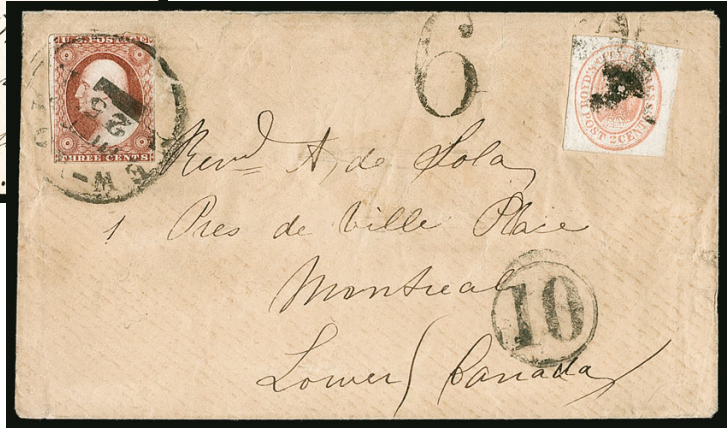 U.S. POSTAGE
THREE CENTS
NEW-
6
BOYD'S CITY EXPRESS
POST 2 CENTS
Revd A, de Sola
1 Pres de Ville Place
Montreal
10
Lower Canada